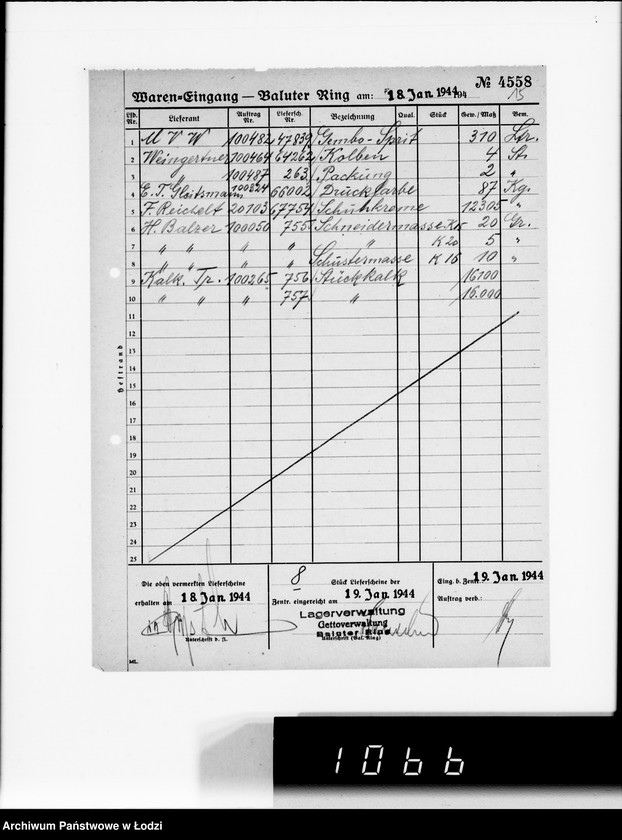 № 4558
Waren=Eingang — Baluter Ring am: 18. Jan. 1944 194
15
Lfd. Nr. Lieferant Auftrag Nr. Liefersch. Nr. Bezeichnung Qual. Stück Gew./Maß Bem.
1 M V W 100482 47839 Gembo-Sprit 310 Ltr.
2 Weingertner 100464 64262 Kolben 4 St.
3 " 100487 263 Packung 2 "
4 E. T. Gleitsmann 100824 66002 Druckfarbe 87 Kg.
5 F. Reichelt 20103 67754 Schuhkreme 12305 "
6 H. Balzer 100050 755 Schneidermasse 20 Gr.
7 " " " " " K 20 5 "
8 " " " " Schustermasse K 16 10 "
9 Kalk. Tr. 100265 756 Stückkalk 16100
10 " " " 757 " 16.000
11
12
13
14
15
16
17
18
19
20
21
22
23
24
25
Heftrand
Die oben vermerkten Lieferscheine
erhalten am 18. Jan. 1944
Unterschrift d. fl.
8 Stück Lieferscheine der
Zentr. eingereicht am 19. Jan. 1944
Lagerverwaltung
Gettoverwaltung
Baluter Ring
Unterschrift (Bal. Ring)
Eing. b. Zentr. 19. Jan. 1944
Auftrag verb.:
ML.
1066
Archiwum Państwowe w Łodzi